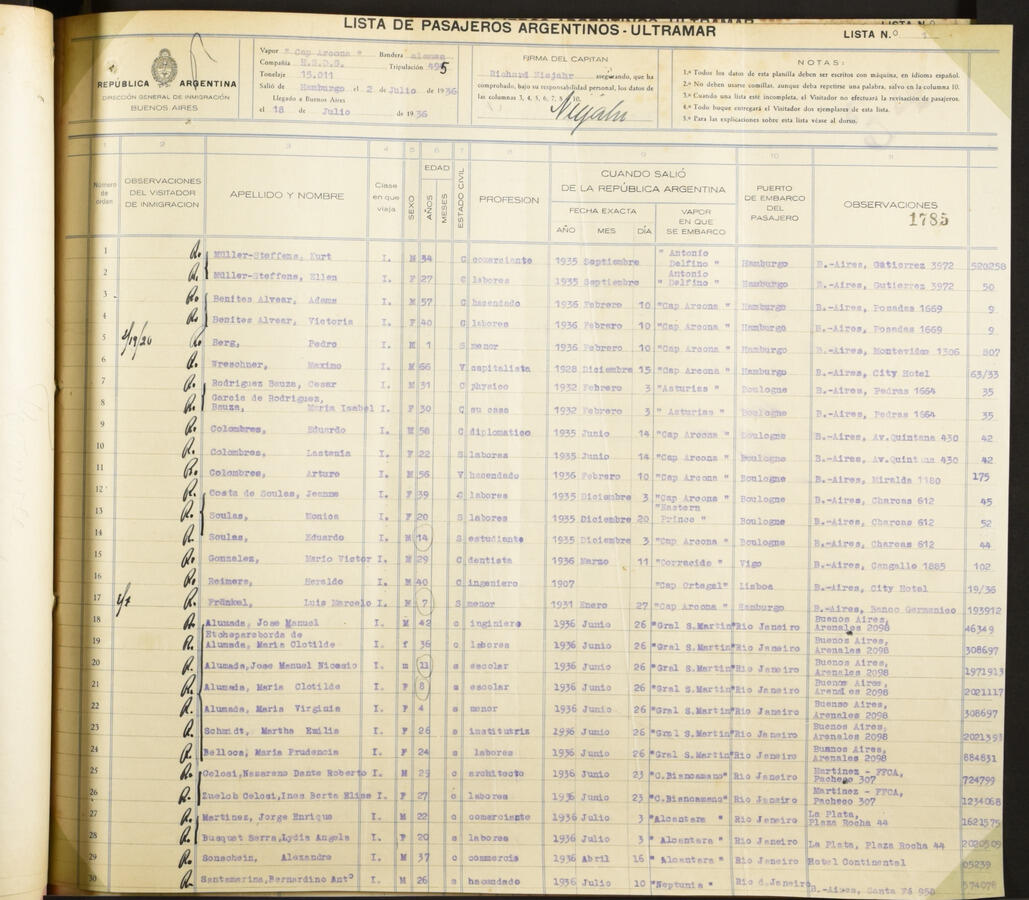 LISTA DE PASAJEROS ARGENTINOS - ULTRAMAR
LISTA N.º
REPÚBLICA ARGENTINA
DIRECCIÓN GENERAL DE INMIGRACIÓN
BUENOS AIRES
Vapor " Cap Arcona " Bandera alemana
Compañía H.S.D.G. Tripulación 495
Tonelaje 15.011
Salió de Hamburgo el 2 de Julio de 1936
Llegado a Buenos Aires
el 18 de Julio de 1936
FIRMA DEL CAPITAN
Richard Niejahr asegurando, que ha
comprobado, bajo su responsabilidad personal, los datos de
las columnas 3, 4, 5, 6, 7, 8, 9, 10.
Niejahr
NOTAS:
1.ª Todos los datos de esta planilla deben ser escritos con máquina, en idioma español.
2.ª No deben usarse comillas, aunque deba repetirse una palabra, salvo en la columna 10.
3.ª Cuando una lista esté incompleta, el Visitador no efectuará la revisación de pasajeros.
4.ª Todo buque entregará el Visitador dos ejemplares de esta lista.
5.ª Para las explicaciones sobre esta lista véase al dorso.
1 2 3 4 5 6 7 8 9 10 11
Número de orden
OBSERVACIONES DEL VISITADOR DE INMIGRACION
APELLIDO Y NOMBRE
Clase en que viaja
SEXO
EDAD
AÑOS
MESES
ESTADO CIVIL
PROFESION
CUANDO SALIÓ DE LA REPÚBLICA ARGENTINA
FECHA EXACTA
AÑO MES DÍA
VAPOR EN QUE SE EMBARCO
PUERTO DE EMBARCO DEL PASAJERO
OBSERVACIONES
1785
1 R. Müller-Steffens, Kurt I. M 34 C comerciante 1935 Septiembre " Antonio Delfino " Hamburgo B.-Aires, Gutierrez 3972 520258
2 R. Müller-Steffens, Ellen I. F 27 C labores 1935 Septiembre Antonio " Delfino " Hamburgo B.-Aires, Gutierrez 3972 50
3 R. Benites Alvear, Adams I. M 57 C hacendado 1936 Febrero 10 "Cap Arcona " Hamburgo B.-Aires, Posadas 1669 9
4 R. Benites Alvear, Victoria I. F 40 C labores 1936 Febrero 10 "Cap Arcona " Hamburgo B.-Aires, Posadas 1669 9
5 R. Berg, Pedro I. M 1 S menor 1936 Febrero 10 "Cap Arcona " Hamburgo B.-Aires, Montevideo 1306 807
6 R. Wreschner, Maximo I. M 66 V capitalista 1928 Diciembre 15 "Cap Arcona " Hamburgo B.-Aires, City Hotel 63/33
7 R. Rodriguez Bauza, Cesar I. M 31 C physico 1932 Febrero 3 "Asturias " Boulogne B.-Aires, Pedras 1664 35
8 R. Garcia de Rodriguez, Bauza, Maria Isabel I. F 30 C su casa 1932 Febrero 3 " Asturias " Boulogne B.-Aires, Pedras 1664 35
9 R. Colombres, Eduardo I. M 58 C diplomatico 1935 Junio 14 "Cap Arcona " Boulogne B.-Aires, Av.Quintana 430 42
10 R. Colombres, Lastenia I. F 22 S labores 1935 Junio 14 "Cap Arcona " Boulogne B.-Aires, Av.Quintana 430 42
11 R. Colombres, Arturo I. M 56 V hacendado 1936 Febrero 10 "Cap Arcona " Boulogne B.-Aires, Miralda 1180 175
12 R. Costa de Soulas, Jeanne I. F 39 C labores 1935 Diciembre 3 "Cap Arcona " Boulogne B.-Aires, Charcas 612 45
13 R. Soulas, Monica I. F 20 S labores 1935 Diciembre 20 "Eastern Prince " Boulogne B.-Aires, Charcas 612 52
14 R. Soulas, Eduardo I. M 14 S estudiante 1935 Diciembre 3 "Cap Arcona " Boulogne B.-Aires, Charcas 612 44
15 R. Gonzalez, Mario Victor I. M 29 C dentista 1936 Marzo 11 "Corracido " Vigo B.-Aires, Cangallo 1885 102
16 R. Reimers, Heraldo I. M 40 C ingeniero 1907 "Cap Ortegal " Lisboa B.-Aires, City Hotel 19/36
17 R. Fränkel, Luis Marcelo I. M 7 S menor 1931 Enero 27 "Cap Arcona " Hamburgo B.-Aires, Banco Germanico 193912
18 R. Alumada, Jose Manuel I. M 42 c inginiero 1936 Junio 26 "Gral S.Martin" Rio Janeiro Buenos Aires, Arenales 2098 46349
19 R. Etchepareborda de Alumada, Maria Clotilde I. f 36 c labores 1936 Junio 26 "Gral S.Martin" Rio Janeiro Buenos Aires, Arenales 2098 308697
20 R. Alumada,Jose Manuel Nicesio I. m 11 s escolar 1936 Junio 26 "Gral S.Martin" Rio Janeiro Buenos Aires, Arenales 2098 1971913
21 R. Alumada, Maria Clotilde I. F 8 s escolar 1936 Junio 26 "Gral S.Martin" Rio Janeiro Buenos Aires, Arenales 2098 2021117
22 R. Alumada, Maria Virginia I. F 4 s menor 1936 Junio 26 "Gral S.Martin" Rio Janeiro Buenso Aires, Arenales 2098 308697
23 R. Schmidt, Martha Emilia I. F 26 s institutris 1936 Junio 26 "Gral S.Martin" Rio Janeiro Buenos Aires, Arenales 2098 2021391
24 R. Belloca, Maria Prudencia I. F 24 s labores 1936 Junio 26 "Gral S.Martin" Rio Janeiro Buenos Aires, Arenales 2098 884831
25 R. Celosi,Nazareno Dante Roberto I. M 29 c architecto 1936 Junio 23 "C.Biancamano" Rio Janeiro Martinez - FFCA, Pacheco 307 724799
26 R. Zueloh Celosi,Ines Berta Elise I. F 27 c labores 1936 Junio 23 "C.Biancamano" Rio Janeiro Martinez - FFCA, Pacheco 307 1234068
27 R. Martinez, Jorge Enrique I. M 22 c comerciante 1936 Julio 3 "Alcantara " Rio Janeiro La Plata, Plaza Rocha 44 1621575
28 R. Busquet Serra,Lydia Angela I. F 20 s labores 1936 Julio 3 " Alcantara " Rio Janeiro La Plata, Plaza Rocha 44
29 R. Sonschein, Alexandre I. M 37 c commercis 1936 Abril 16 " Alcantara " Rio Janeiro Hotel Continental 05239
30 R. Santamarina,Bernardino Antº I. M 26 s hacendado 1936 Julio 10 "Neptunia " Rio d.Janeiro B.-Aires, Santa Fé 950 574078